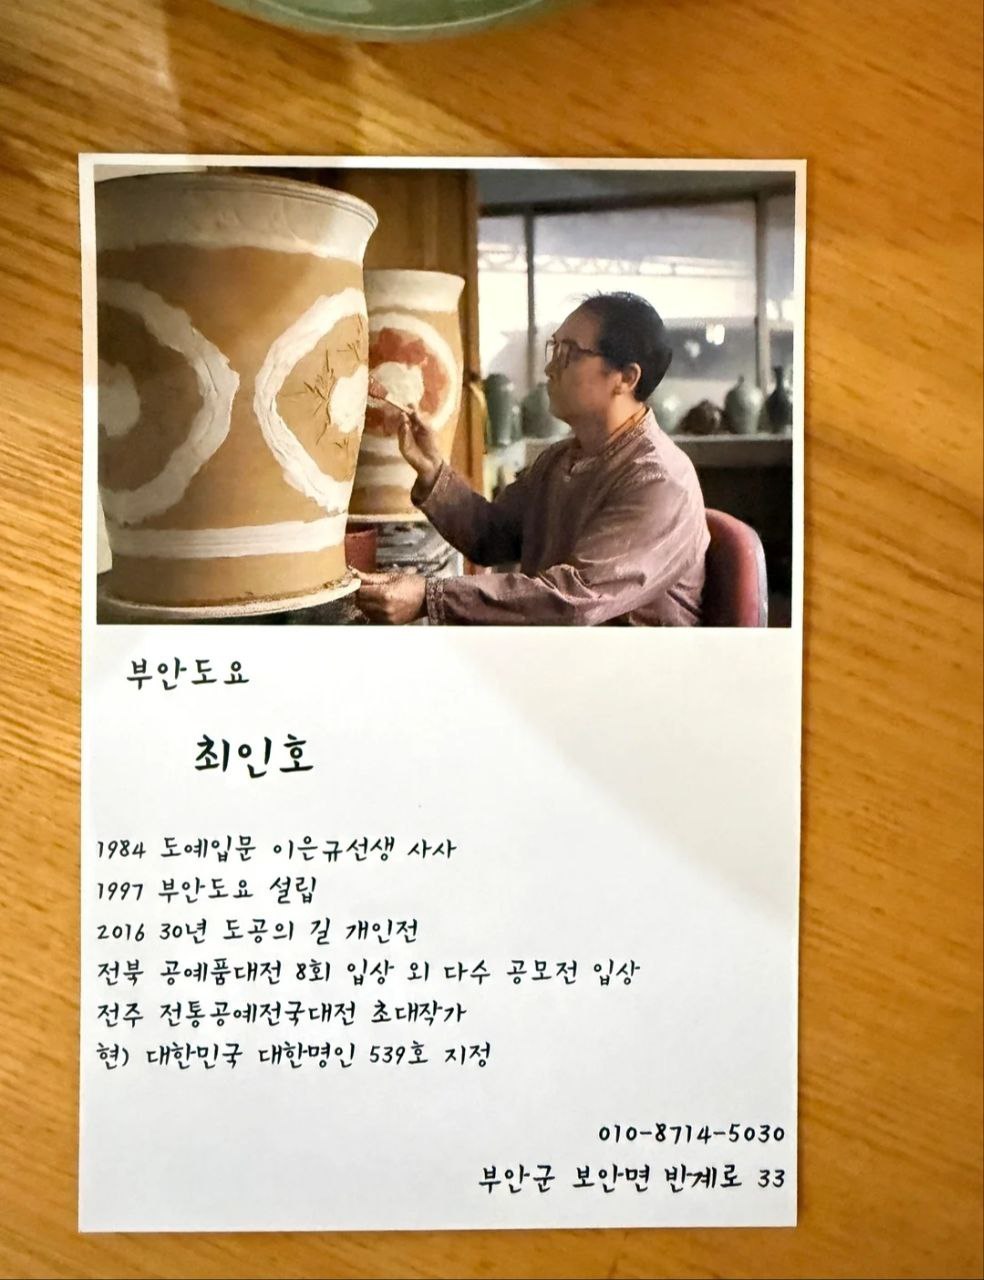 부안도요
최인호
1984 도예입문 이은규선생 사사
1997 부안도요 설립
2016 30년 도공의 길 개인전
전북 공예품대전 8회 입상 외 다수 공모전 입상
전주 전통공예전국대전 초대작가
현) 대한민국 대한명인 539호 지정
010-8714-5030
부안군 보안면 반계로 33